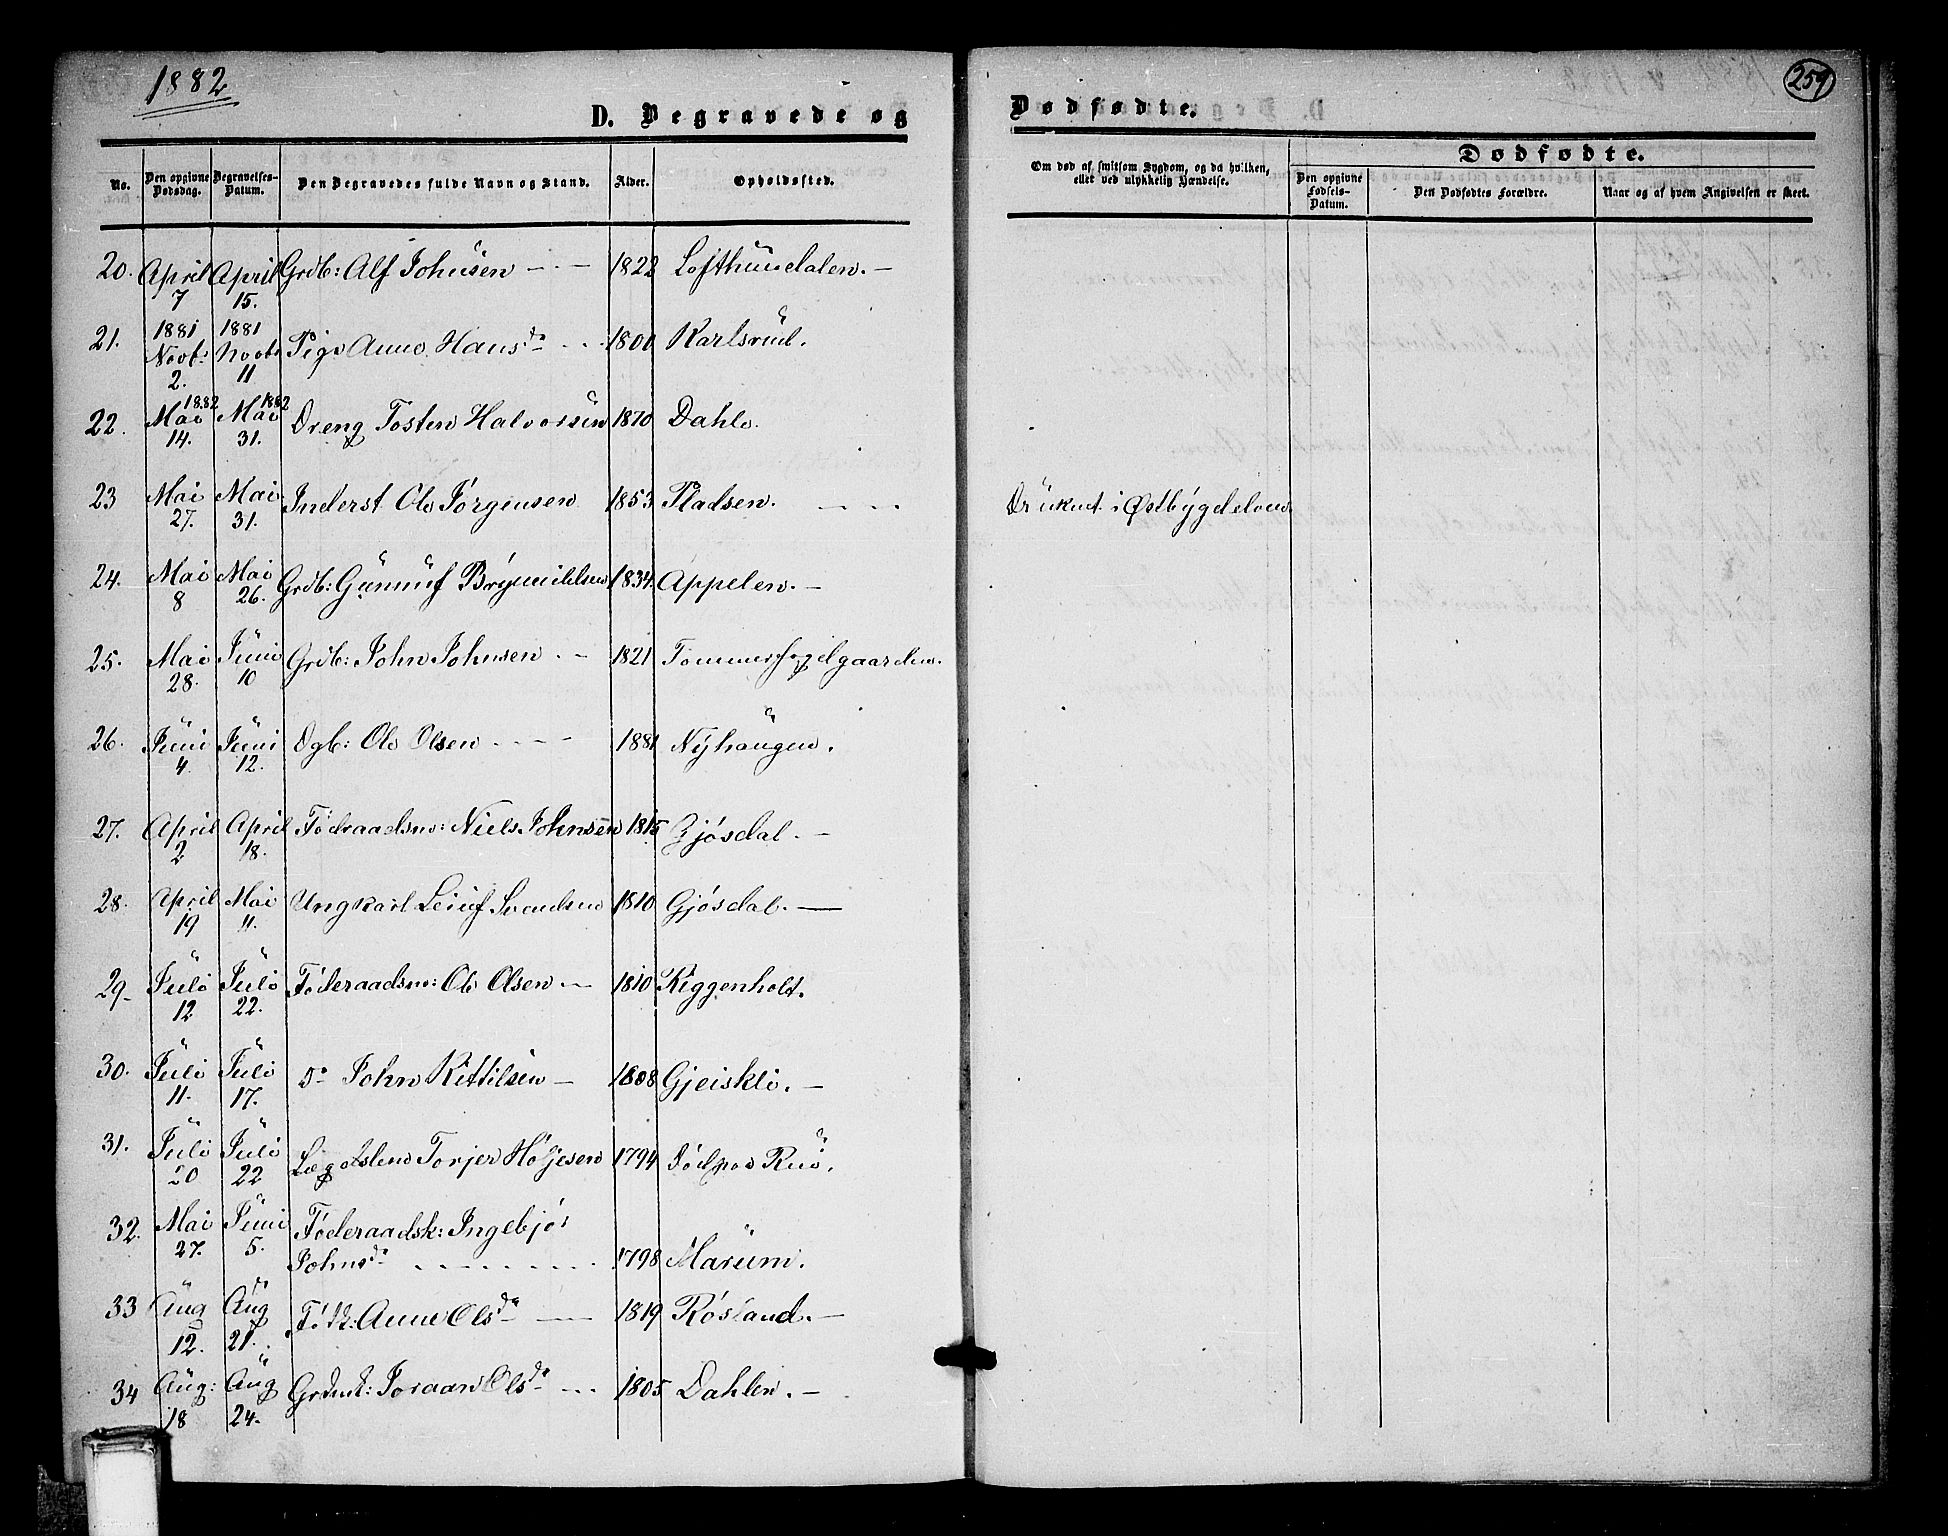 1882
259
D. Begravede og Dødfødte.
No. Den opgivne Dødsdag. Begravelses-Datum. Den Begravedes fulde Navn og Stand. Alder. Opholdssted. Om død af smitsom Sygdom, og da hvilken, eller ved ulykkelig Hændelse. Dødfødte. Den opgivne Fødsels-Datum. Den Dødfødtes Forældre. Naar og af hvem Angivelsen er skeet.
20. April 7 April 15. Grdb: Alf Johnsen 1822 Lofthundalen.
21. 1881 Novb: 2. 1881 Novb: 11 Pige Anne Hansda 1800 Karlsrud.
22. Mai 1882 14. Mai 1882 31. Dreng Tosten Halvorsen 1870 Dahle.
23 Mai 27. Mai 31. Inderst Ole Jørgensen 1853 Pladsen. Druknet i Østbygdelven
24. Mai 8 Mai 26. Grdb: Gunnuf Brynildsen 1834 Appelen.
25. Mai 28. Juni 10 Grdb: John Johnsen 1821
26. Juni 4. Juni 12. Dgb: Ole Olsen 1881 Nyhaugen.
27. April 2 April 18. Föderaadsm: Niels Johnsen 1815 Gjösdal.
28. April 19 Mai 11. Ungkarl Leiuf Svendsen 1810 Gjösdal.
29 Juli 12 Juli 22. Föderaadsm: Ole Olsen 1810 Kiggenholt.
30. Juli 11. Juli 17. Do John Kittilsen 1808 Gjeiskli.
31. Juli 20 Juli 22 Lægdslem Torjer Höljesen 1794
32. Mai 27. Juni 5. Föderaadsk: Ingebjör
Johnsda 1798 Marum.
33 Aug 12. Aug 21. Fök: Anne Olsda 1819 Rösland.
34 Aug: 18 Aug 24. Joraan Olsda 1805 Dahlen.